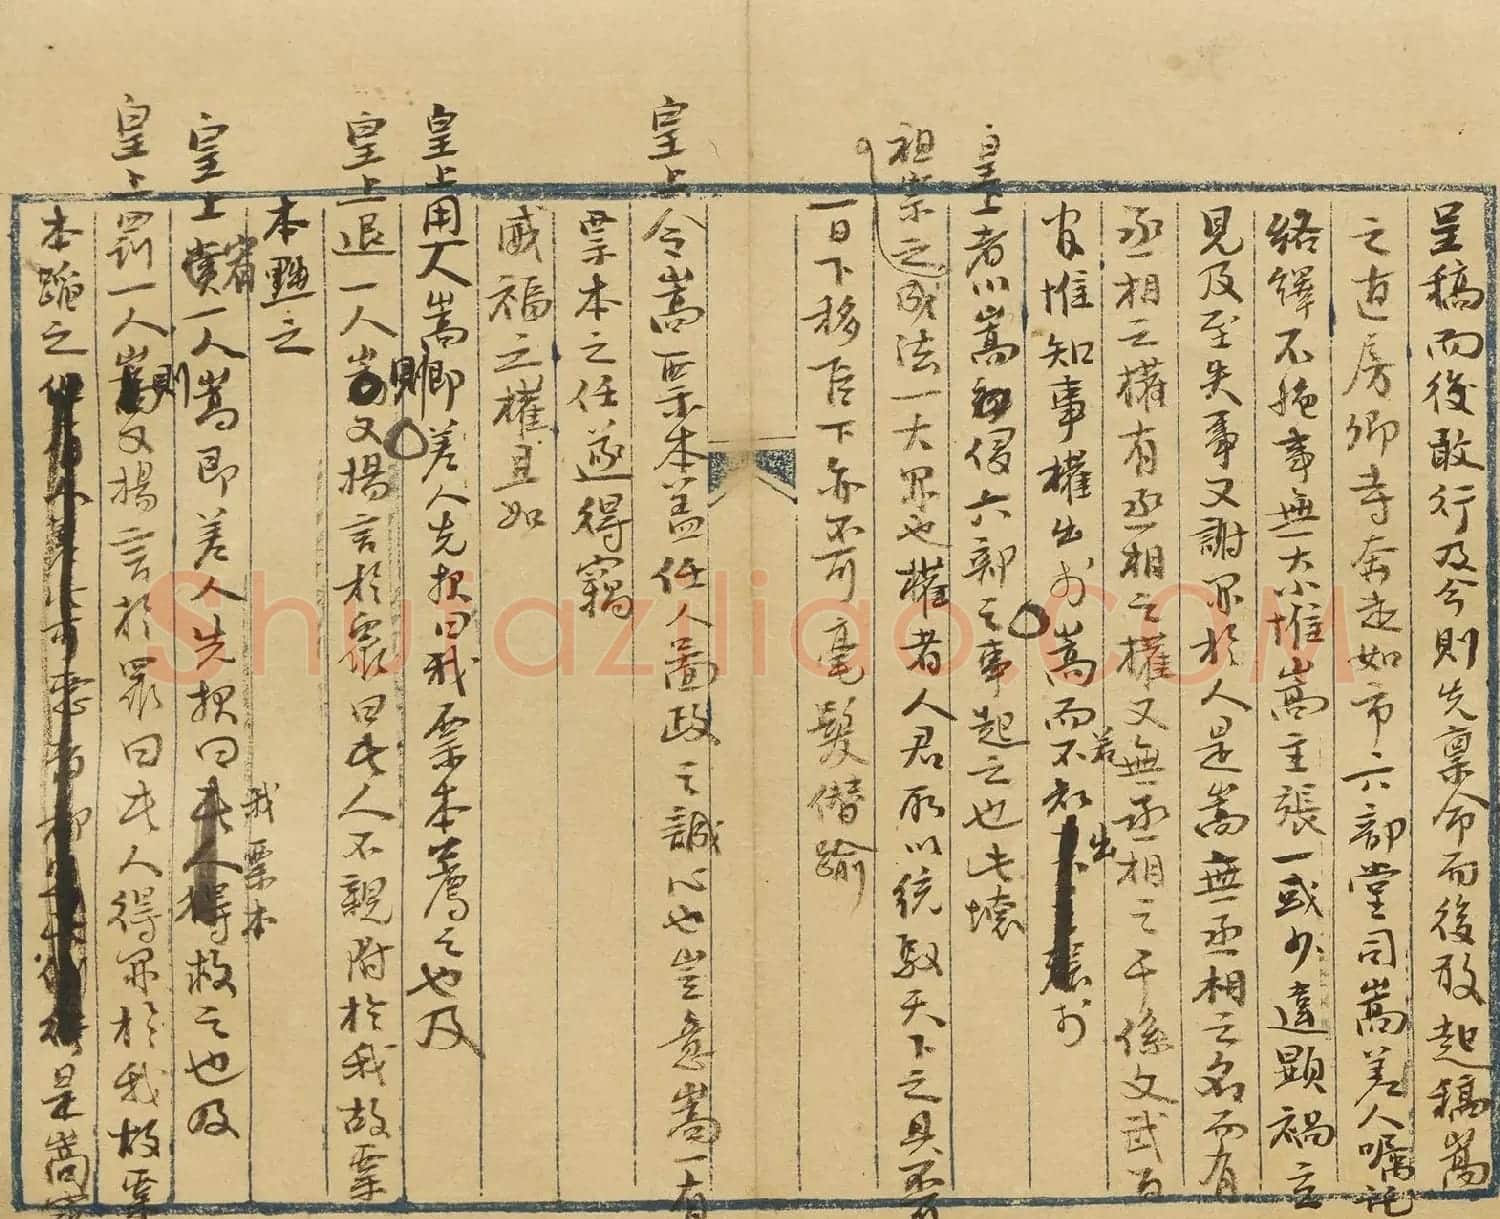 呈稿而後敢行及今則先稟命而後敢起稿嵩
之直房卿寺奔走如市六部堂司嵩差人囑託
絡繹不絶事無大小惟嵩主張一或少違顯禍立
見及至失事又謝罪於人是嵩無丞相之名而有
丞相之權有丞相之權又無丞相之干係文武百
官惟知事權出於嵩而不知出於
皇上者以嵩侵六部之事起之也此壞
祖宗之成法一大罪也權者人君所以統馭天下之具不可
一日下移臣下亦不可毫髮僭踰
皇上令嵩票本蓋任人圖政之誠心也豈意嵩一有
票本之任遂得竊
威福之權且如
皇上用人嵩即差人先報曰我票本薦之也及
皇上退一人嵩則又揚言於眾曰此人不親附於我故票
本黜之
皇上宥一人嵩即差人先報曰我票本救之也及
皇上罰一人嵩則又揚言於眾曰此人得罪於我故票
本謫之是嵩
Shufaziliao.COM